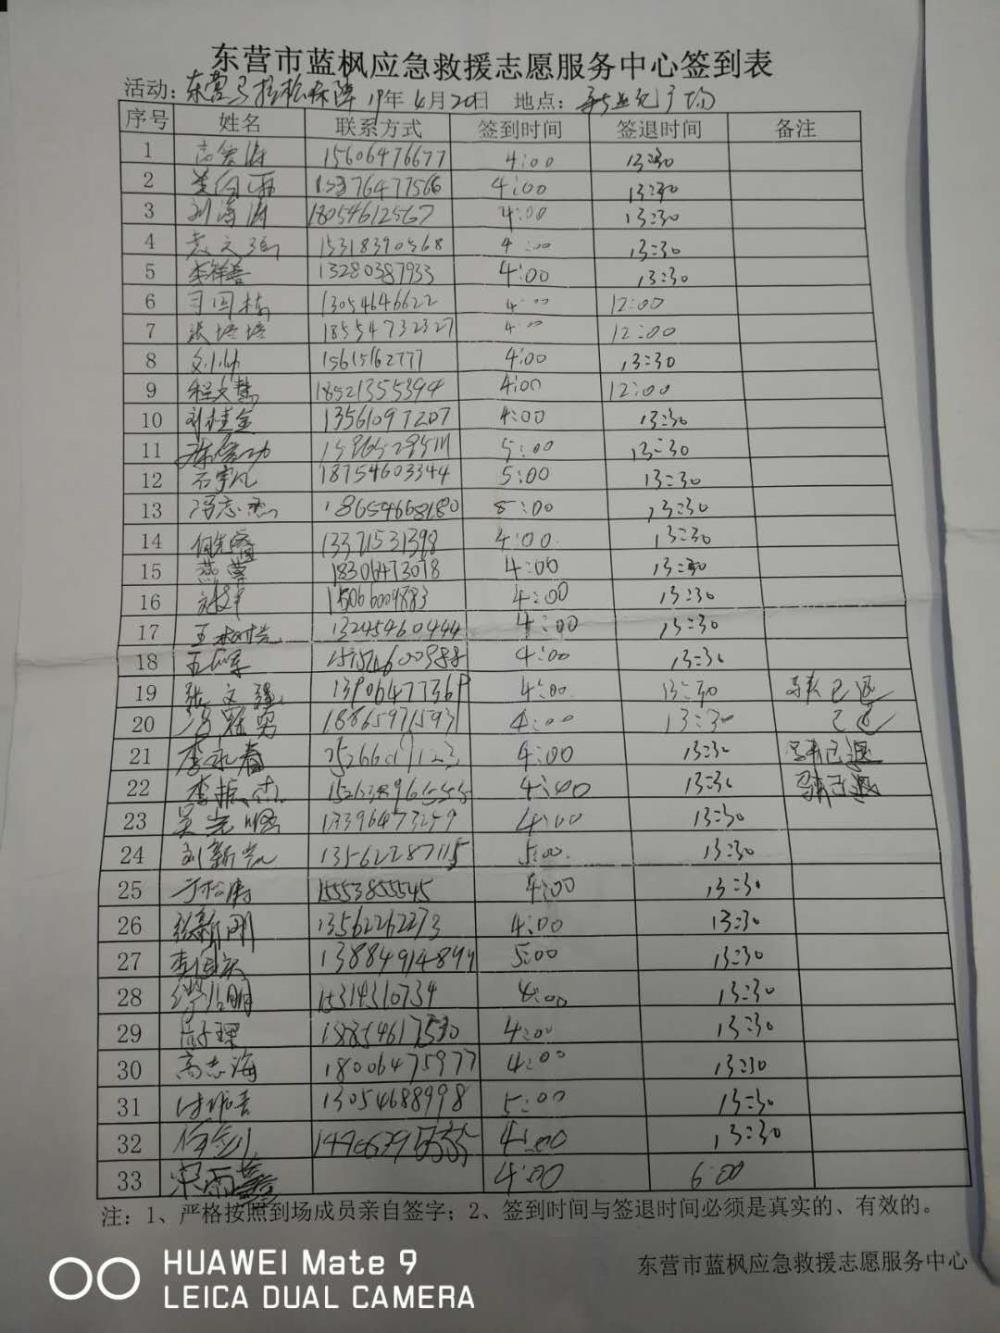 东营市蓝枫应急救援志愿服务中心签到表
活动：东营马拉松保障 19年 4月20日 地点：新世纪广场
序号 姓名 联系方式 签到时间 签退时间 备注
1 高宏涛 15606476677 4:00 13:30
2 4:00 13:30
3 刘海涛 18054612567 4:00 13:30
4 袁文强 15318390568 4:00 13:30
5 李祥善 13280387933 4:00 13:30
6 司国栋 13054646622 4:00 12:00
7 张培培 18554732327 4:00 12:00
8 刘帅 15615162777 4:00 13:30
9 程文慧 18521355394 4:00 12:00
10 刘桂金 13561097207 4:00 13:30
11 5:00 13:30
12 石宇凡 18754603344 5:00 13:30
13 冯志杰 18654668180 5:00 13:30
14 13371531398 4:00 13:30
15 燕苹 18306473078 4:00 13:30
16 15066009883 4:00 13:30
17 王树 13245460444 4:00 13:30
18 4:00 13:30
19 张文强 4:00 13:30 已退
20 冯冠男 18865971593 4:00 13:30 已退
21 李永春 4:00 13:30 已退
22 李振杰 4:00 13:30 已退
23 吴光 13396473259 4:00 13:30
24 刘新凯 13562287115 5:00 13:30
25 于松涛 15553855545 4:00 13:30
26 张新刚 13562262273 4:00 13:30
27 5:00 13:30
28 15314310734 4:00 13:30
29 18854617530 4:00 13:30
30 高志海 18006475977 4:00 13:30
31 13054688998 5:00 13:30
32 4:00 13:30
33 宋雨 4:00 6:00
注：1、严格按照到场成员亲自签字；2、签到时间与签退时间必须是真实的、有效的。
东营市蓝枫应急救援志愿服务中心
HUAWEI Mate 9
LEICA DUAL CAMERA